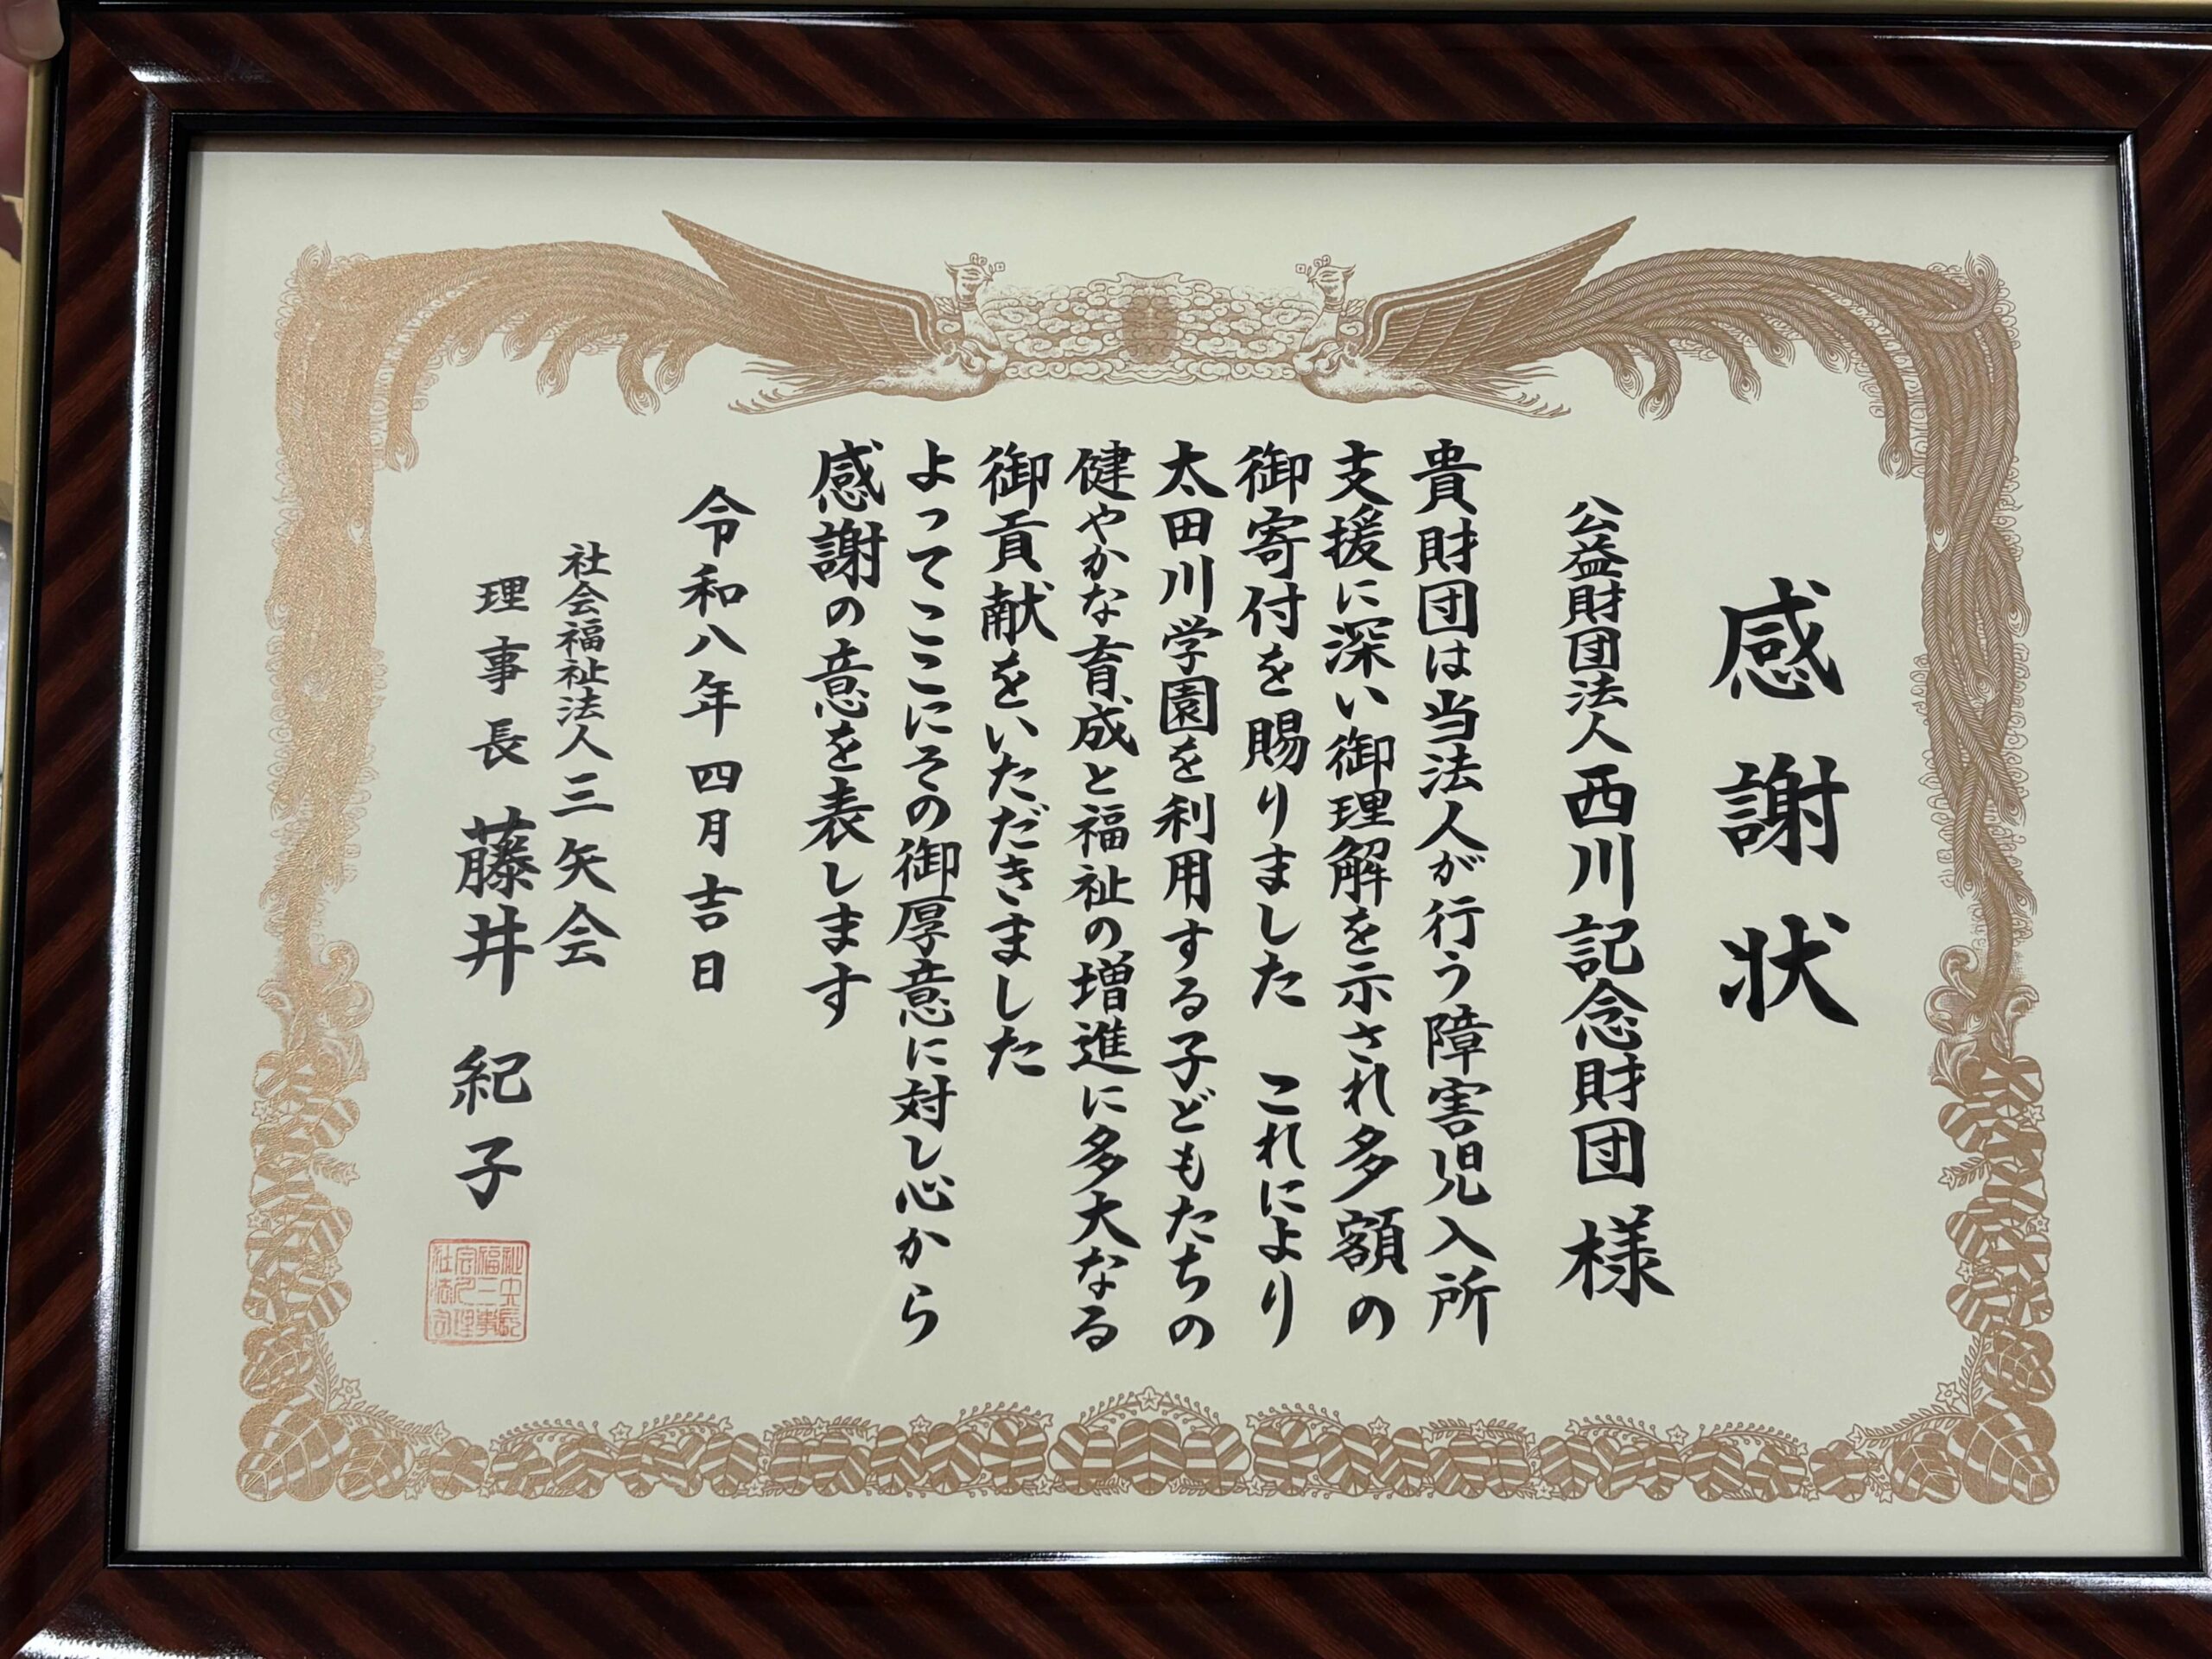 感謝状
公益財団法人西川記念財団様
貴財団は当法人が行う障害児入所
支援に深い御理解を示され多額の
御寄付を賜りました　これにより
太田川学園を利用する子どもたちの
健やかな育成と福祉の増進に多大なる
御貢献をいただきました
よってここにその御厚意に対し心から
感謝の意を表します
令和八年四月吉日
社会福祉法人三矢会
理事長　藤井　紀子